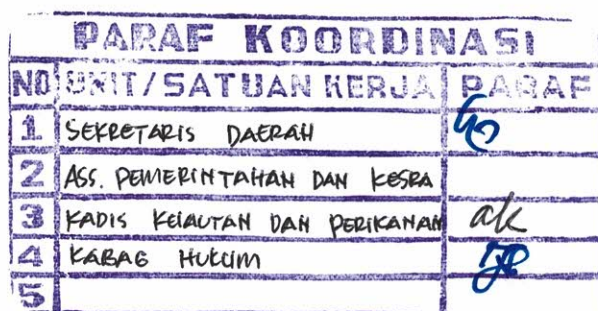 PARAF KOORDINASI
NO UNIT/SATUAN KERJA PARAF
1 SEKRETARIS DAERAH
2 ASS. PEMERINTAHAN DAN KESRA
3 KADIS KELAUTAN DAN PERIKANAN ak
4 KABAG HUKUM
5